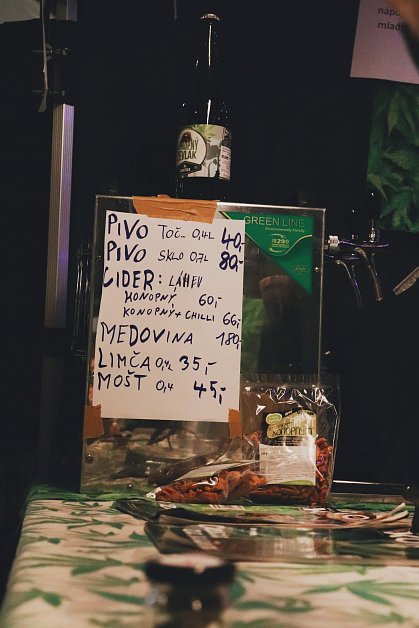 nápo
mlad
PIVO TOČ. 0,4L 40,-
PIVO SKLO 0,7L 80,-
CIDER: LÁHEV
KONOPNÝ 60,-
KONOPNÝ + CHILLI 66,-
MEDOVINA 180,-
LIMČA 0,4L 35,-
MOŠT 0,4 45,-
GREEN LINE
Environmentally friendly
R290